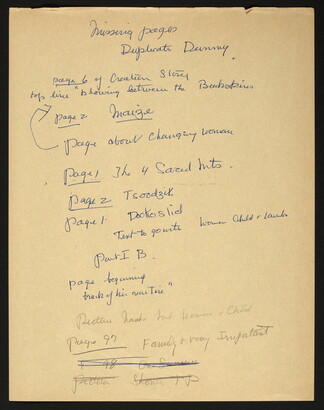 Missing pages
Duplicate Dummy
page 6 of Creation Story
top line "showing between the
page 2 Maize
page about Changing woman
page 1 The 4 Sacred Mts.
page 2 Tsoodzil
page 1
Text to go with Woman Child & lamb
Part I B.
page beginning
"
Picture Woman & Child
Page 97 Family & very Important
98